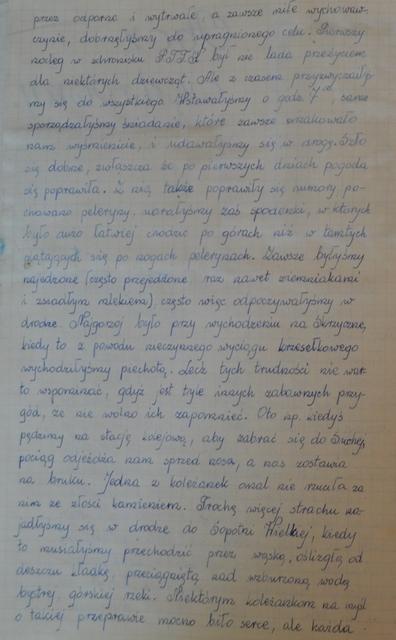 przez odporne i wytrwałe, a zawsze miłe wychowaw-
czynie, dobrnęłyśmy do upragnionego celu. Pierwszy
nocleg w schronisku P.T.T.K był nie lada przeżyciem
dla niektórych dziewcząt. Ale z czasem przyzwyczaiły-
my się do wszystkiego. Wstawałyśmy o godz. 7⁰⁰, same
sporządzałyśmy śniadanie, które zawsze smakowało
nam wyśmienicie, i udawałyśmy się w drogę. Szło
się dobrze, zwłaszcza że po pierwszych dniach pogoda
się poprawiła. Z nią także poprawiły się humory, po-
chowano peleryny, ubrałyśmy zaś spodenki, w których
było dużo łatwiej chodzić po górach niż w tamtych
plątających się po nogach pelerynach. Zawsze byłyśmy
najedzone (często przejedzone raz nawet ziemniakami
i zsiadłym mlekiem), często więc odpoczywałyśmy w
drodze. Najgorzej było przy wychodzeniu na Skrzyczne,
kiedy to z powodu nieczynnego wyciągu krzesełkowego
wychodziłyśmy piechotą. Lecz tych trudności nie war-
to wspominać, gdyż jest tyle innych zabawnych przy-
gód, że nie wolno ich zapomnieć. Oto np. kiedyś
pędzimy na stację kolejową, aby zabrać się do Suchej,
pociąg odjeżdża nam sprzed nosa, a nas zostawia
na bruku. Jedna z koleżanek omal nie rzuciła za
nim ze złości kamieniem. Trochę więcej strachu na-
jadłyśmy się w drodze do Sopotni Wielkiej, kiedy
to musiałyśmy przechodzić przez wąską, oślizgłą od
deszczu kładkę, przeciągniętą nad wzburzoną wodą
bystrej, górskiej rzeki. Niektórym koleżankom na myśl
o takiej przeprawie mocno biło serce, ale każda